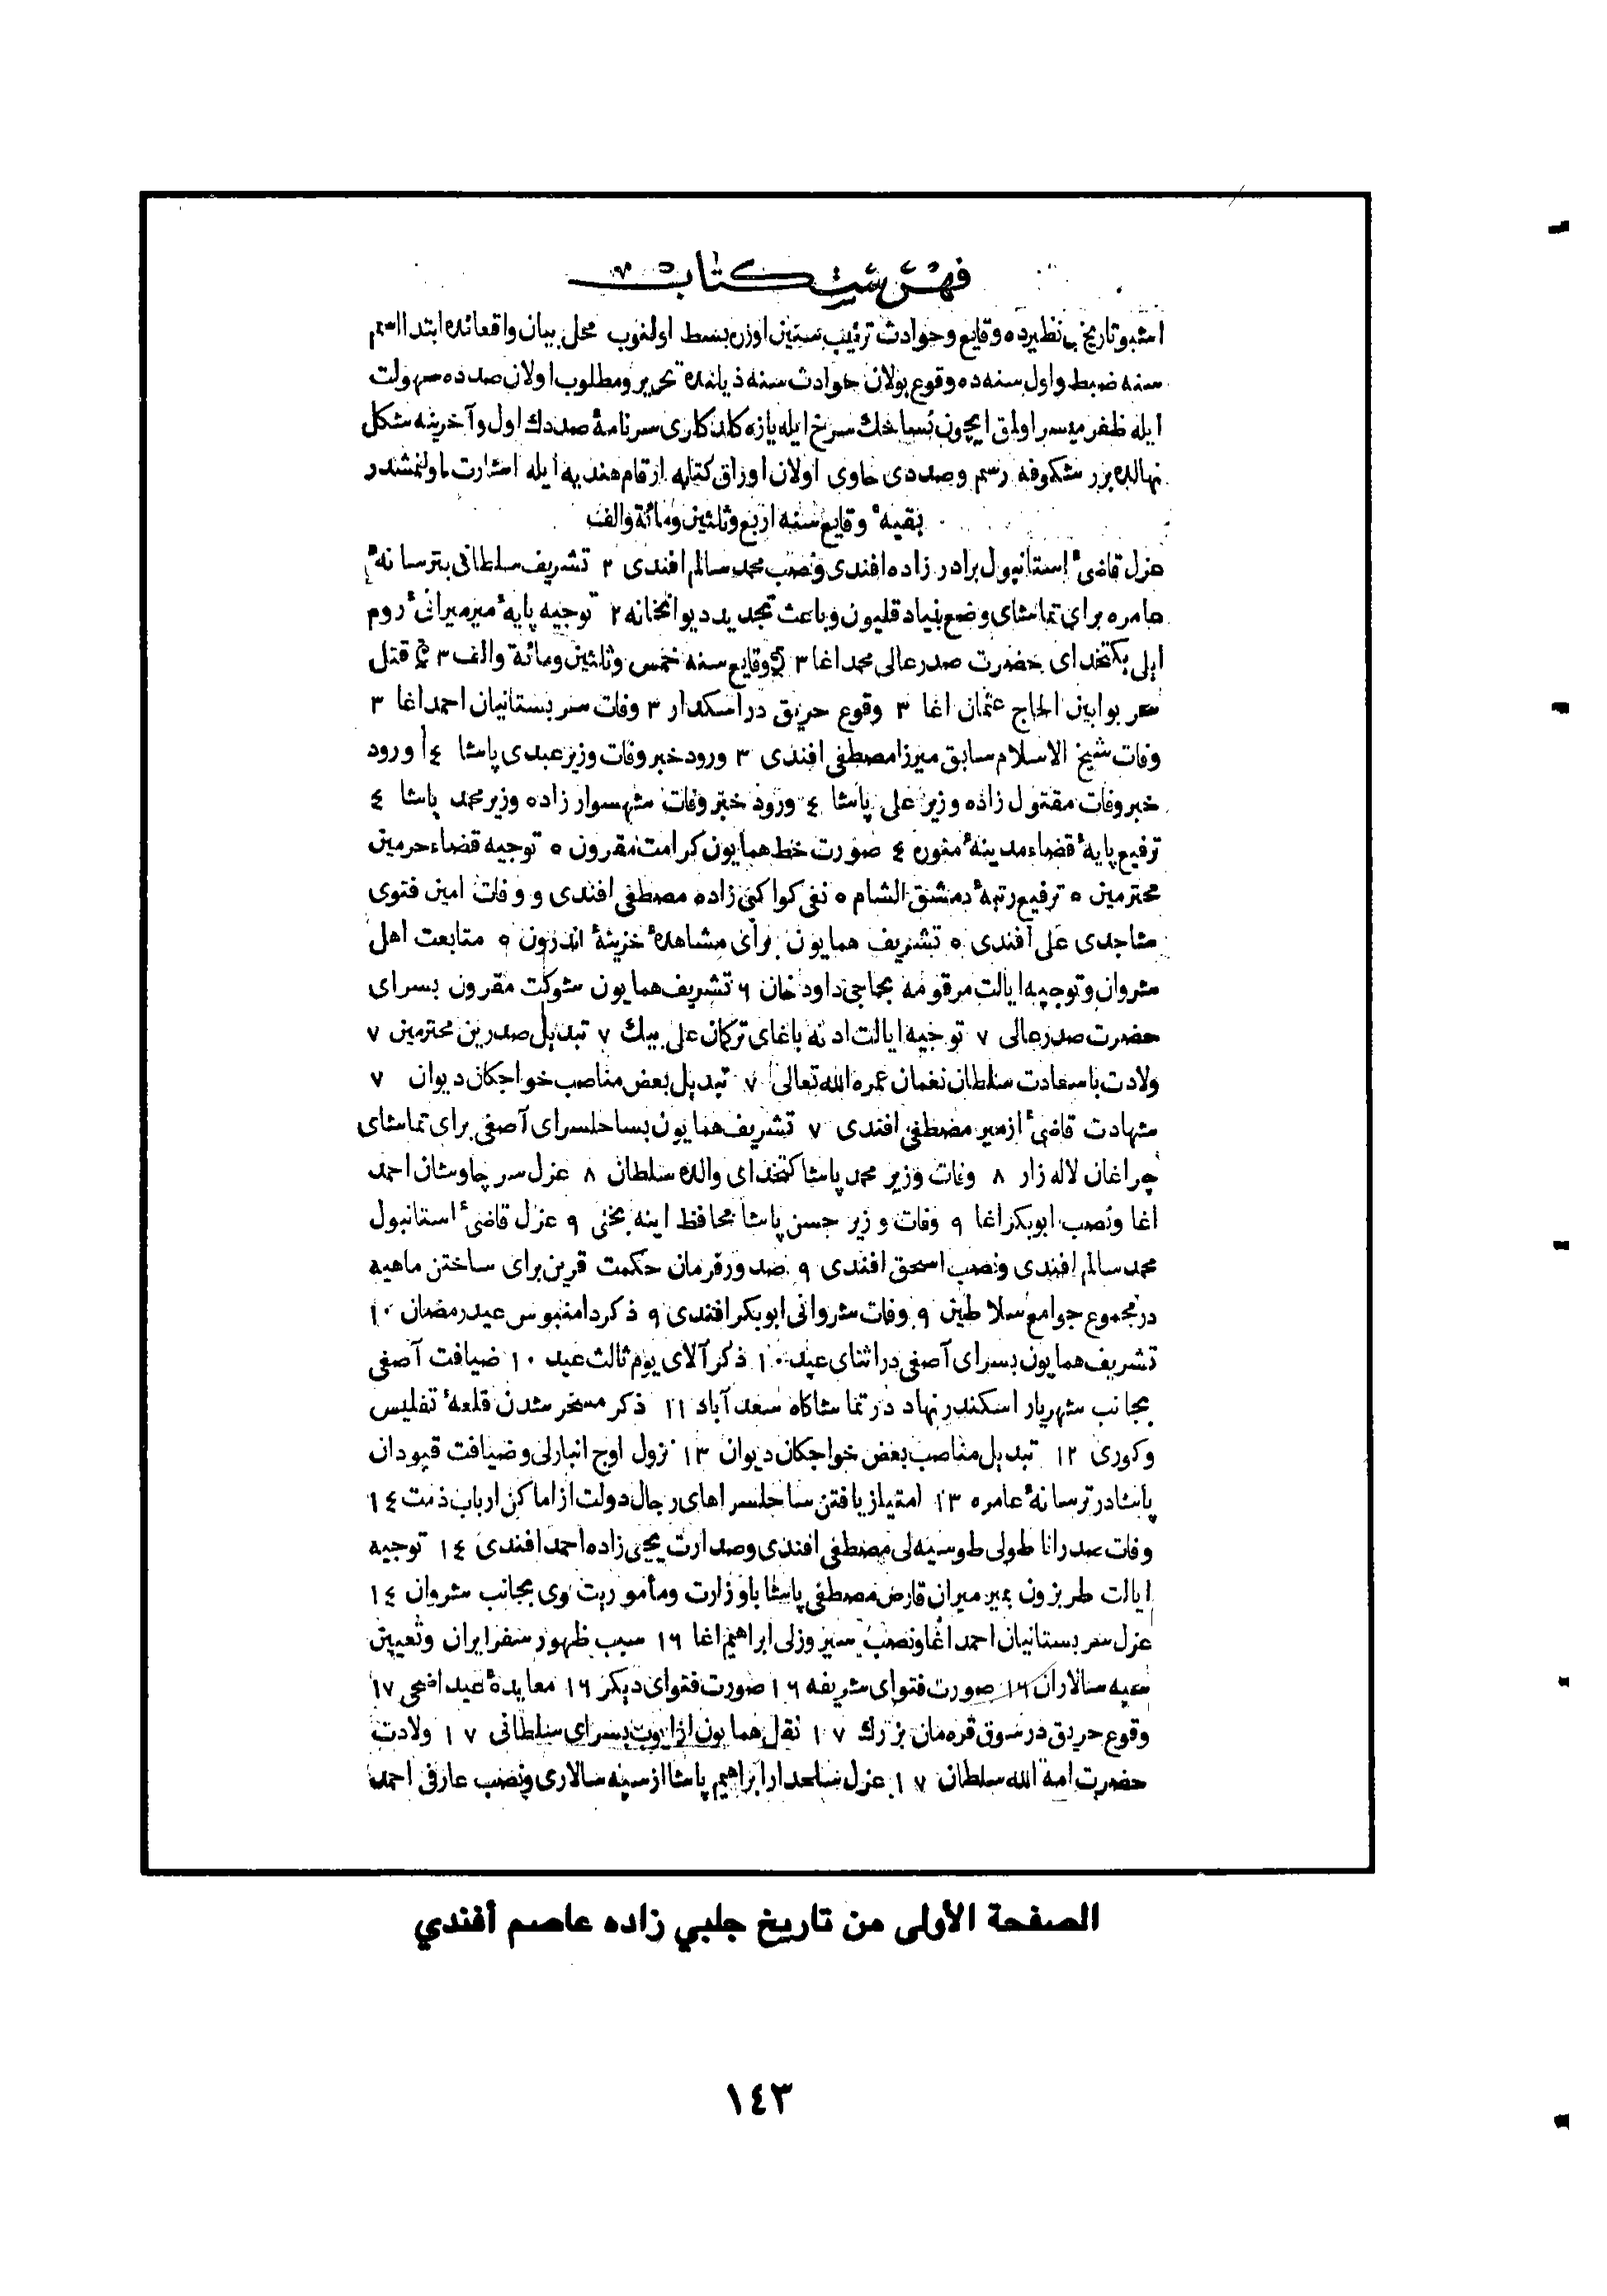 فهرست كتاب
اشبو تاريخ بى نظيرده وقايع وحوادث ترتيب سنين اوزره بسط اولنوب محل بيان واقعاتده ابتدا اسم
سنه ضبط واول سنه ده وقوع بولان حوادث سنه ذيلنده تحرير ومطلوب اولان صدده سهولت
ايله ظفر ميسر اولمق ايچون نساخك سرخ ايله يازه كلدكلرى سرنامۀ صددك اول وآخرينه شكل
نهالده برر شكوفه رسم وصددى حاوى اولان اوراق كتابه ارقام هنديه ايله اشارت اولنمشدر
بقيۀ وقايع سنه اربع وثلثين ومائة والف
عزل قاضئ استانبول برادر زاده افندى ونصب محمد سالم افندى ٢ تشريف سلطانى بترسانۀ
عامره براى تماشاى وضع بنياد قليون وباعث تجديد ديوانخانه ٢ توجيه پايۀ ميرميرانئ روم
ايلى بكتخداى حضرت صدر عالى محمد اغا ٣ وقايع سنه خمس وثلثين ومائة والف ٣ قتل
سر بوابين الحاج عثمان اغا ٣ وقوع حريق در اسكدار ٣ وفات سر بستانيان احمد اغا ٣
وفات شيخ الاسلام سابق ميرزا مصطفى افندى ٣ ورود خبر وفات وزير عبدى پاشا ٤ ورود
خبر وفات مقتول زاده وزير على پاشا ٤ ورود خبر وفات شهسوار زاده وزير محمد پاشا ٤
ترفيع پايۀ قضاء مدينۀ منوره ٤ صورت خط همايون كرامت مقرون ٥ توجيه قضاء حرمين
محترمين ٥ ترفيع رتبۀ دمشق الشام ٥ نفى كواكبى زاده مصطفى افندى و وفات امين فتوى
شاجدى على افندى ٥ تشريف همايون براى مشاهدۀ خزينۀ اندرون ٥ متابعت اهل
شروان وتوجيه ايالت مرقومه بحاجى داود خان ٦ تشريف همايون شوكت مقرون بسراى
حضرت صدر عالى ٧ توجيه ايالت ادنه باغاى تركمان على بيك ٧ تبديل صدرين محترمين ٧
ولادت باسعادت سلطان نعمان عمره الله تعالى ٧ تبديل بعض مناصب خواجكان ديوان ٧
شهادت قاضئ ازمير مصطفى افندى ٧ تشريف همايون بساحلسراى آصفى براى تماشاى
چراغان لاله زار ٨ وفات وزير محمد پاشا كتخداى والده سلطان ٨ عزل سر چاوشان احمد
اغا ونصب ابوبكر اغا ٩ وفات وزير حسن پاشا محافظ اينه بختى ٩ عزل قاضئ استانبول
محمد سالم افندى ونصب اسحق افندى ٩ صدور فرمان حكمت قرين براى ساختن ماهيه
در مجموع جوامع سلاطين ٩ وفات شروانى ابوبكر افندى ٩ ذكر دامنبوس عيد رمضان ١٠
تشريف همايون بسراى آصفى در اثناى عيد ١٠ ذكر آلاى يوم ثالث عيد ١٠ ضيافت آصفى
بجانب شهريار اسكندر نهاد در تماشاكاه سعد آباد ١١ ذكر مسخر شدن قلعۀ تفليس
وكورى ١٢ تبديل مناصب بعض خواجكان ديوان ١٣ نزول اوج انبارلى وضيافت قپودان
پاشا در ترسانۀ عامره ١٣ امتياز يافتن ساحلسراهاى رجال دولت از اماكن ارباب ذمت ١٤
وفات صدر اناطولى طوسيه لى مصطفى افندى وصدارت يحيى زاده احمد افندى ١٤ توجيه
ايالت طربزون بمير ميران قارص مصطفى پاشا باوزارت ومأموريت وى بجانب شروان ١٤
عزل سر بستانيان احمد اغا ونصب سيروزلى ابراهيم اغا ١٦ سبب ظهور سفر ايران وتعيين
سپه سالاران ١٦ صورت فتواى شريفه ١٦ صورت فتواى ديكر ١٦ معايدۀ عيد اضحى ١٧
وقوع حريق در سوق قره مان بزرك ١٧ نقل همايون از ايوب بسراى سلطانى ١٧ ولادت
حضرت امة الله سلطان ١٧ عزل سلحدار ابراهيم پاشا از سپه سالارى ونصب عارفى احمد
الصفحة الأولى من تاريخ جلبي زاده عاصم أفندي
١٤٣